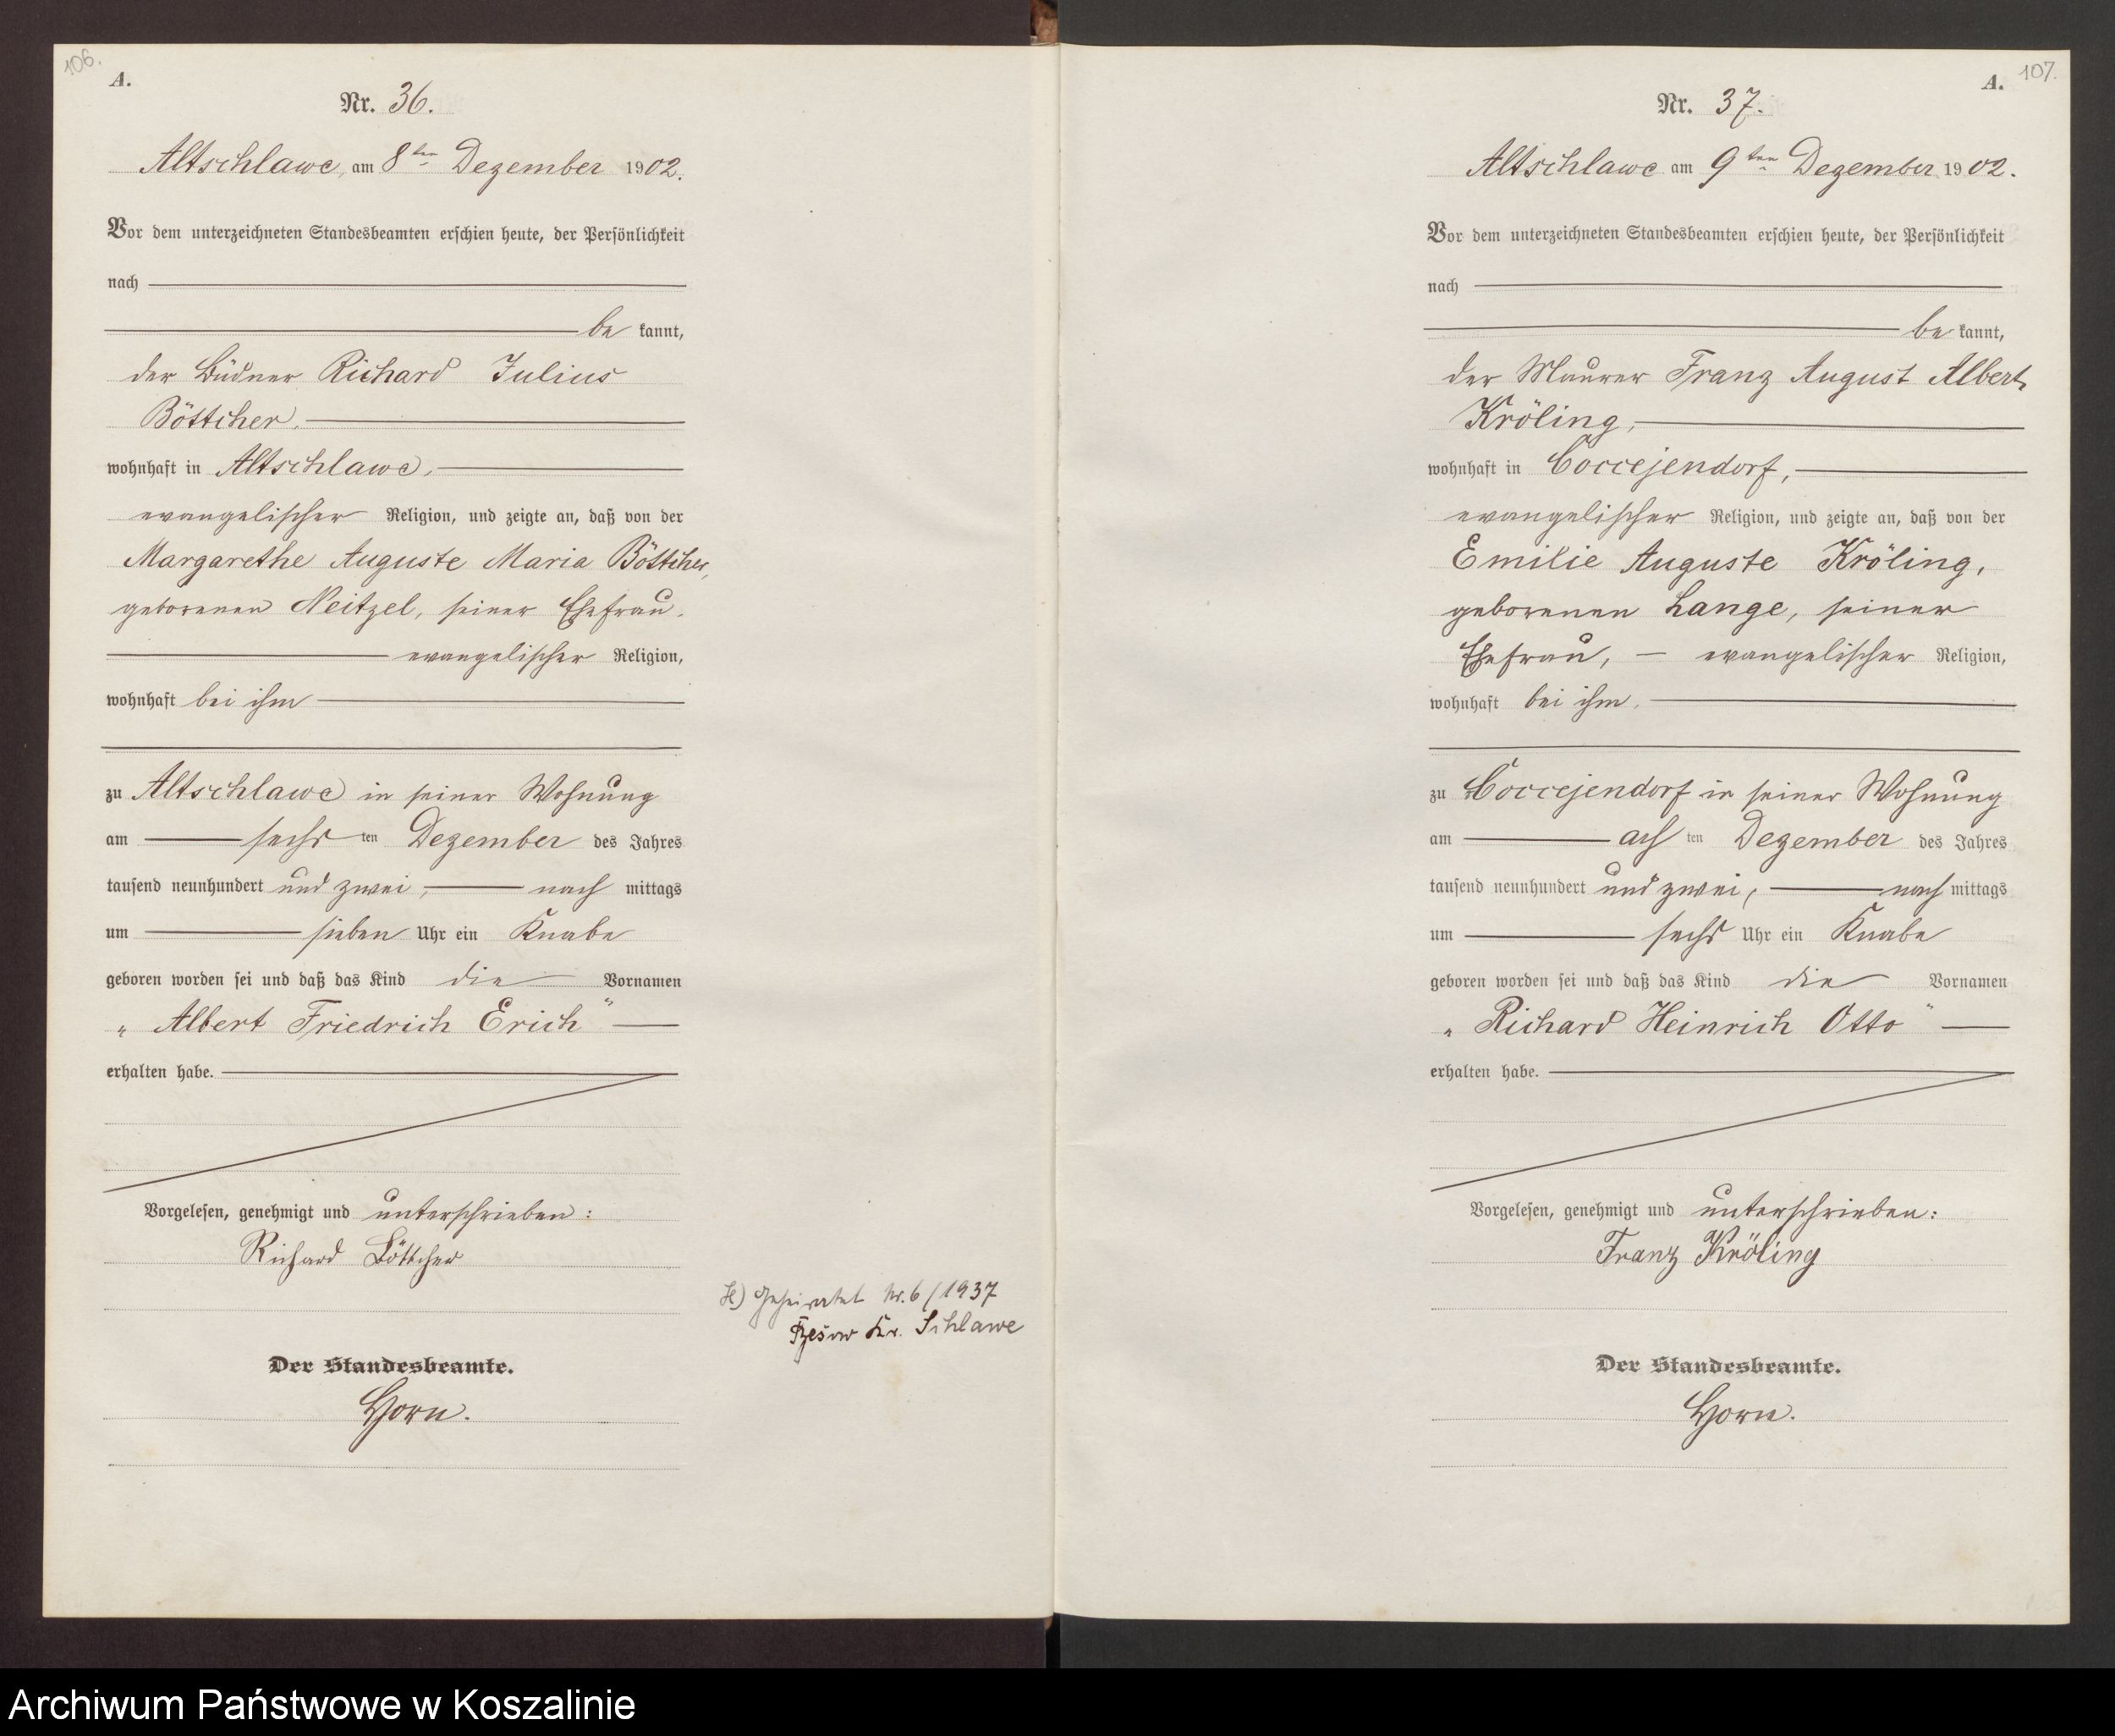 106.
A.
Nr. 36.
Altschlawe, am 8ten Dezember 1902.
Vor dem unterzeichneten Standesbeamten erschien heute, der Persönlichkeit
nach
be kannt,
der Büdner Richard Julius
Böttcher,
wohnhaft in Altschlawe,
evangelischer Religion, und zeigte an, daß von der
Margarethe Auguste Maria Böttcher,
geborenen Neitzel, seiner Ehefrau,
evangelischer Religion,
wohnhaft bei ihm
zu Altschlawe in seiner Wohnung
am sechs ten Dezember des Jahres
tausend neunhundert und zwei, nach mittags
um sieben Uhr ein Knabe
geboren worden sei und daß das Kind die Vornamen
„Albert Friedrich Erich"
erhalten habe.
Vorgelesen, genehmigt und unterschrieben:
Richard Böttcher
Geheiratet Nr. 6/1937
Kr. Schlawe
Der Standesbeamte.
Horn.
107.
A.
Nr. 37.
Altschlawe am 9ten Dezember 1902.
Vor dem unterzeichneten Standesbeamten erschien heute, der Persönlichkeit
nach
be kannt,
der Maurer Franz August Albert
Kröling,
wohnhaft in Coccejendorf,
evangelischer Religion, und zeigte an, daß von der
Emilie Auguste Kröling,
geborenen Lange, seiner
Ehefrau, — evangelischer Religion,
wohnhaft bei ihm,
zu Coccejendorf in seiner Wohnung
am ach ten Dezember des Jahres
tausend neunhundert und zwei, nach mittags
um sechs Uhr ein Knabe
geboren worden sei und daß das Kind die Vornamen
„Richard Heinrich Otto"
erhalten habe.
Vorgelesen, genehmigt und unterschrieben:
Franz Kröling
Der Standesbeamte.
Horn.
Archiwum Państwowe w Koszalinie